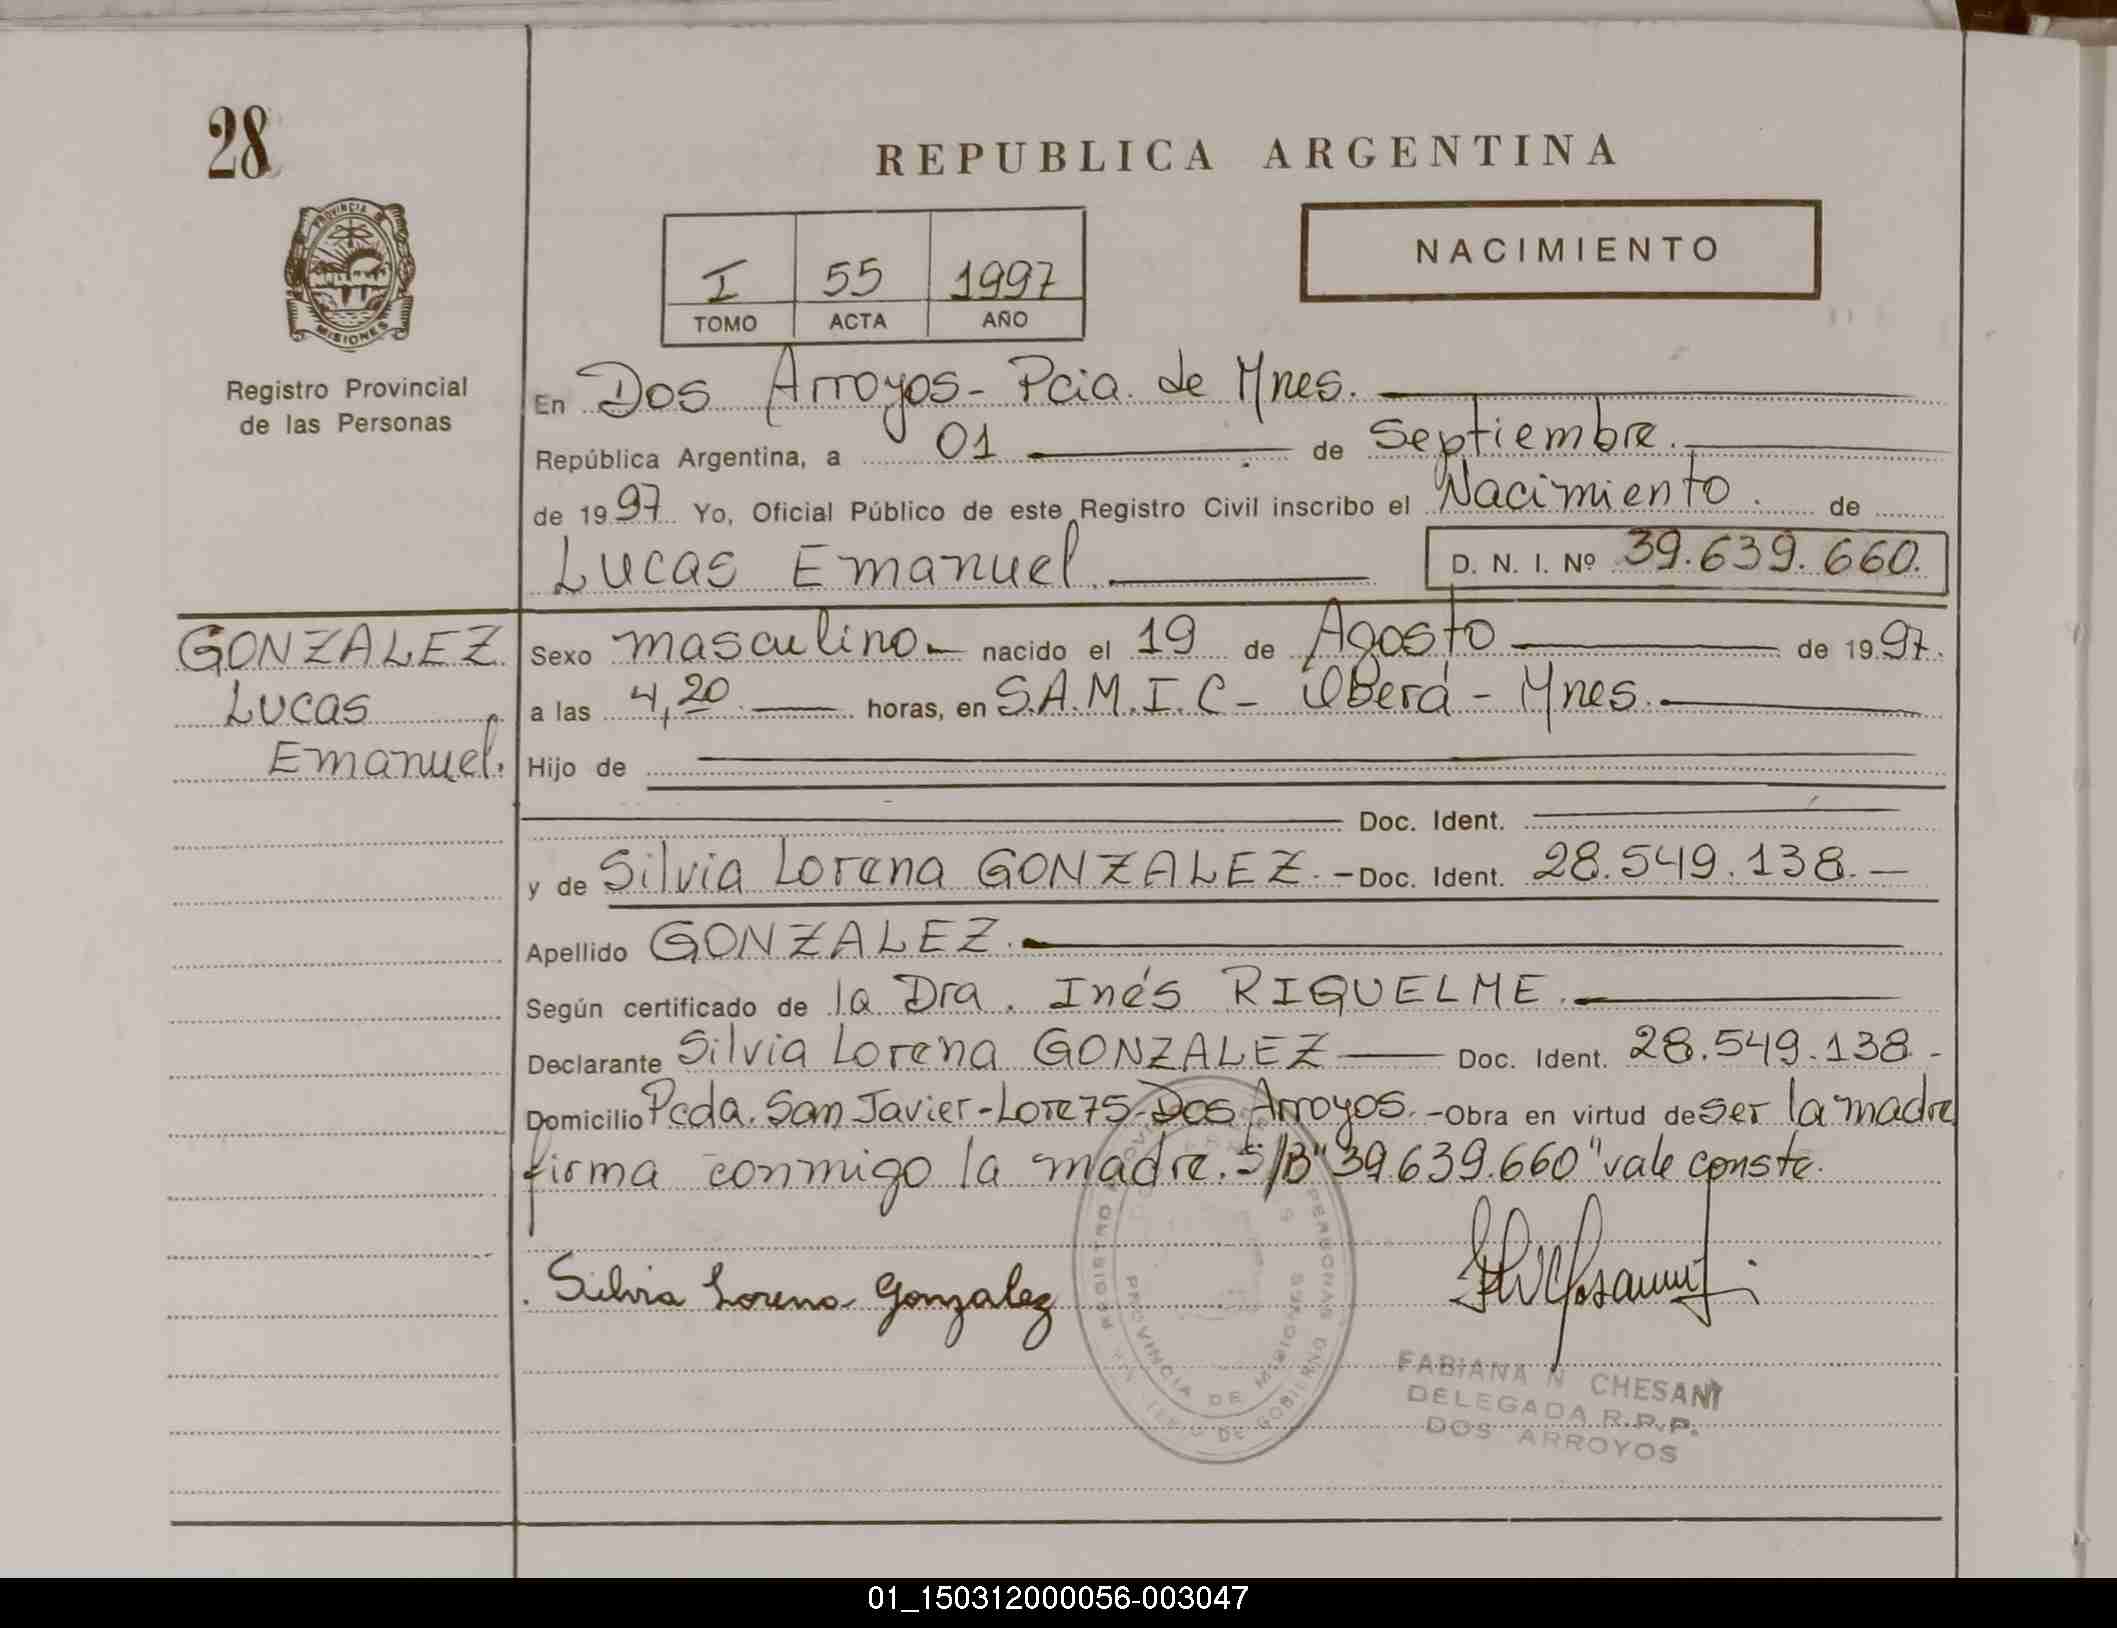 28
REPUBLICA ARGENTINA
PROVINCIA DE
MISIONES
Registro Provincial
de las Personas
I 55 1997
TOMO ACTA AÑO
NACIMIENTO
En Dos Arroyos - Pcia. de Mnes.
República Argentina, a 01 de Septiembre.
de 1997 Yo, Oficial Público de este Registro Civil inscribo el Nacimiento. de
Lucas Emanuel D. N. I. Nº 39.639.660.
GONZALEZ
Lucas
Emanuel.
Sexo masculino - nacido el 19 de Agosto de 1997.
a las 4,20 horas, en S.A.M.I.C - Oberá - Mnes.
Hijo de
Doc. Ident.
y de Silvia Lorena GONZALEZ. - Doc. Ident. 28.549.138. -
Apellido GONZALEZ.
Según certificado de la Dra. Inés RIQUELME.
Declarante Silvia Lorena GONZALEZ Doc. Ident. 28.549.138 -
Domicilio Pcda. San Javier - Lote 75 - Dos Arroyos. - Obra en virtud de ser la madre
firma conmigo la madre. S/B "39.639.660" vale conste.
Silvia Lorena Gonzalez
PROVINCIA DE MISIONES
FABIANA N CHESANI
DELEGADA R.P.P.
DOS ARROYOS
01_150312000056-003047